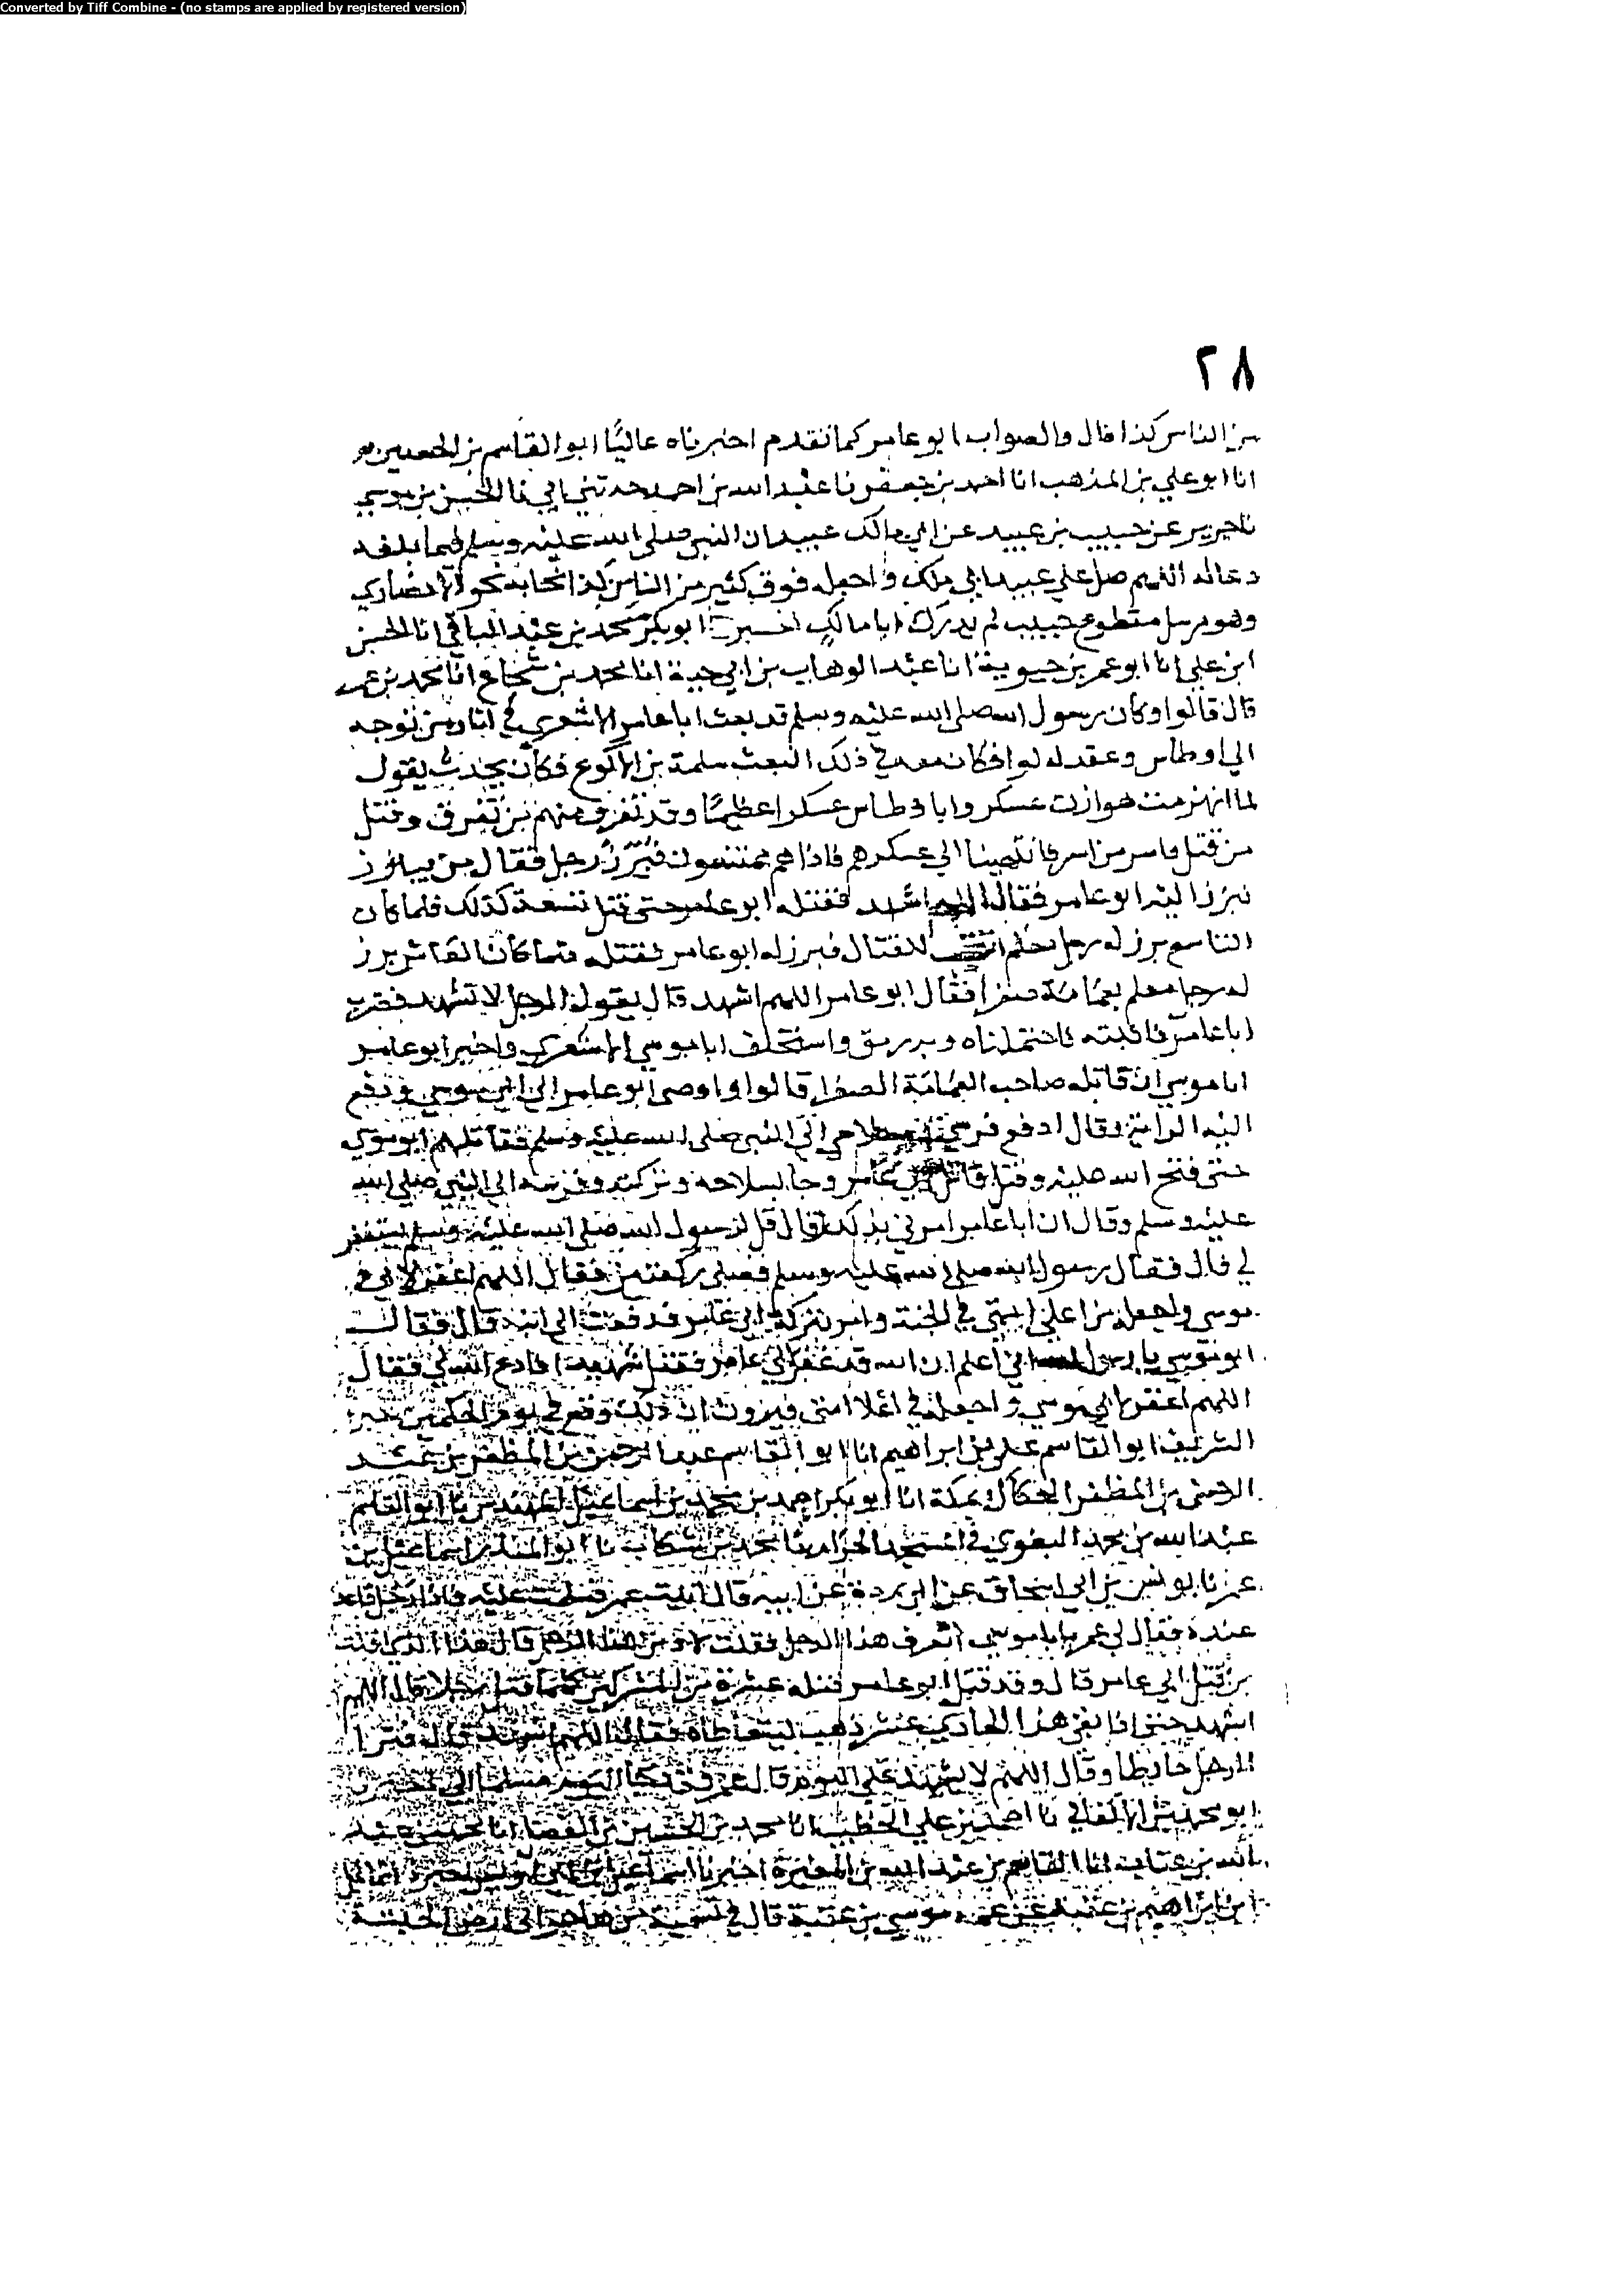 Converted by Tiff Combine - (no stamps are applied by registered version)
٢٨
من الناس كذا قال والصواب ابو عامر كما تقدم اخبرناه عاليًا ابو القاسم بن الحصين
انا ابو علي بن المذهب انا احمد بن جعفر نا عبد الله بن احمد حدثني ابي نا الحسن بن موسى
نا حريز عن حبيب بن عبيد عن ابي مالك عبيد ان النبي صلى الله عليه وسلم فيما بلغه
دعا له اللهم صل علي عبيد ابي ملك واجعله فوق كثير من الناس
وهو مرسل مقطوع حبيب لم يدرك ابا مالك ابو بكر محمد بن عبد الباقي انا الحسن
ابن علي انا ابو عمر بن حيوية انا عبد الوهاب بن ابي حية انا محمد بن شجاع انا محمد بن عمر
قال قالوا وكان رسول الله صلى الله عليه وسلم قد بعث ابا عامر الاشعري في اثار من توجه
الي اوطاس وعقد له لوا فكان معه في ذلك البعث سلمة بن الاكوع فكان يحدث يقول
لما انهزمت هوازن عسكروا باوطاس عسكرا عظيمًا وقد تفرق منهم من تفرق وقتل
من قتل واسر من اسر فانتهينا الي عسكرهم فاذا هم ممتنعون فبرز رجل فقال من يبارز
فبرز اليه ابو عامر فقال اللهم اشهد فقتله ابو عامر حتى قتل تسعة كذلك فلما كان
التاسع برز له رجل معلم للقتال فبرز له ابو عامر فقتله فلما كان العاشر برز
له رجل معلم بعمامة صفرا فقال ابو عامر اللهم اشهد قال يقول الرجل لا تشهد فضرب
ابا عامر فاثبته فاحتملناه وبه رمق واستخلف ابا موسي الاشعري واخبر ابو عامر
ابا موسي ان قاتله صاحب العمامة الصفرا قالوا واوصى ابو عامر الى ابي موسي ودفع
اليه الراية وقال ادفع فرسي وسلاحي الى النبي صلى الله عليه وسلم فقاتلهم ابو موسي
حتى فتح الله عليه وقتل قاتل ابي عامر وجا بسلاحه وتركته وفرسه الى النبي صلى الله
عليه وسلم وقال ان ابا عامر امرني بذلك وقال قل لرسول الله صلى الله عليه وسلم يستغفر
لي قال فقال رسول الله صلى الله عليه وسلم فصلى ركعتين فقال اللهم اغفر لابي
موسى واجعله من اعلي امتي في الجنة وامر بتركة ابي عامر فدفعت الى ابنه قال فقال
ابو موسي يا رسول الله اني اعلم ان الله قد غفر لابي عامر فقتل شهيدا فادع الله لي فقال
اللهم اغفر لابي موسي واجعله في اعلا امتي فيرون ان ذلك وقع في يوم الحكمين
الشريف ابو القاسم علي بن ابراهيم انا ابو القاسم عبد الرحمن بن المظفر بن
الرحمن بن المظفر الكحال بمكة انا ابو بكر احمد بن محمد بن اسماعيل المهندس نا ابو القاسم
عبد الله بن محمد البغوي في المسجد الحرام نا محمد بن اشكاب نا ابو المنذر اسماعيل بن
عمر نا يونس بن ابي اسحاق عن ابي بردة عن ابيه قال اتيت عمر فسلمت عليه فاذا رجل قاعد
عنده فقال لي عمر يابا موسي اتعرف هذا الرجل فقلت لا ومن هذا الرجل قال هذا الذي افلت
من قتل ابي عامر قال وقد قتل ابو عامر قبله عشرة من المشركين كلما قتل رجلا قال اللهم
اشهد حتى اذا بقي هذا الحادي عشر ذهب ليتعاطاه فقال اللهم اشهد قال فنزا
الرجل حايطا وقال اللهم لا تشهد علي اليوم قال عمر
ابو محمد بن الاكفاني نا احمد بن علي الخطيب انا محمد بن الحسين بن الفضل انا محمد بن عبد
الله بن عتاب انا القاسم بن عبد الله بن المغيرة اخبرنا اسماعيل بن ابي اويس
ابن ابراهيم بن عقبة عن عمه موسي بن عقبة قال في تسمية من هاجر الى ارض الحبشة